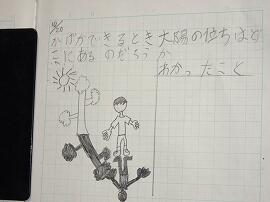 10/20
かげができるとき太陽の位ちはど
こにあるのだろうか
わかったこと